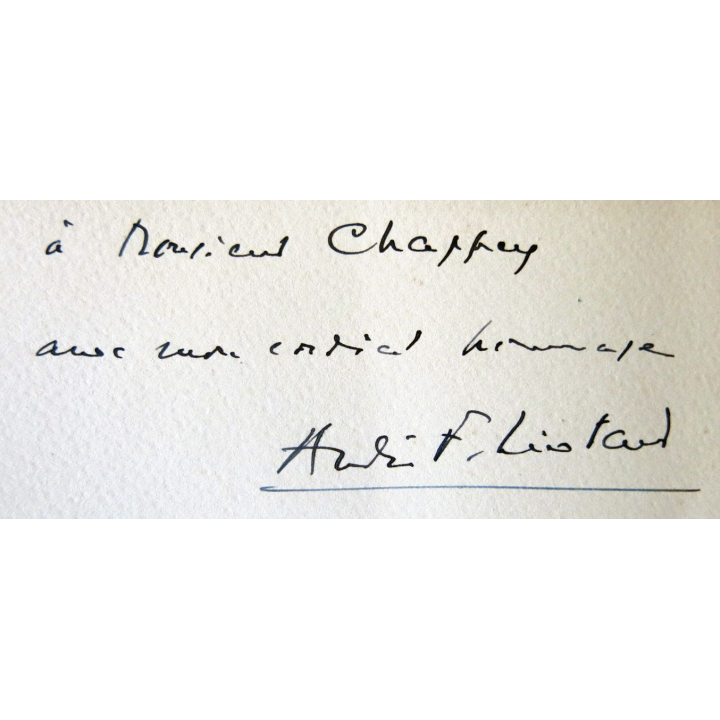 à Monsieur Chappey
avec mon cordial hommage
André F. Liotard